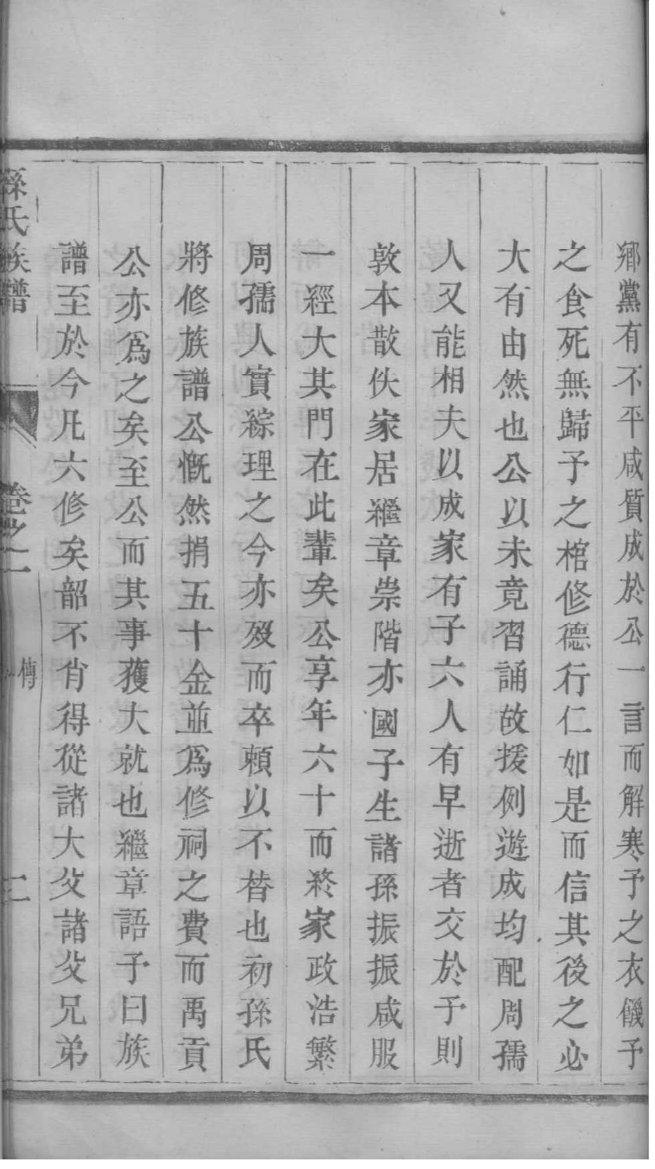 鄉黨有不平咸質成於公一言而解寒予之衣饑予
之食死無歸予之棺修德行仁如是而信其後之必
大有由然也公以未竟習誦故援例遊成均配周孺
人又能相夫以成家有子六人有早逝者交於予則
敦本散佚家居繼章崇階亦國子生諸孫振振咸服
一經大其門在此輩矣公享年六十而終家政浩繁
周孺人實綜理之今亦歿而卒賴以不替也初孫氏
將修族譜公慨然捐五十金並為修祠之費而禹貢
公亦為之矣至公而其事獲大就也繼章語予曰族
譜至於今凡六修矣韶不肖得從諸大父諸父兄弟
孫氏族譜
卷之二
傳
二